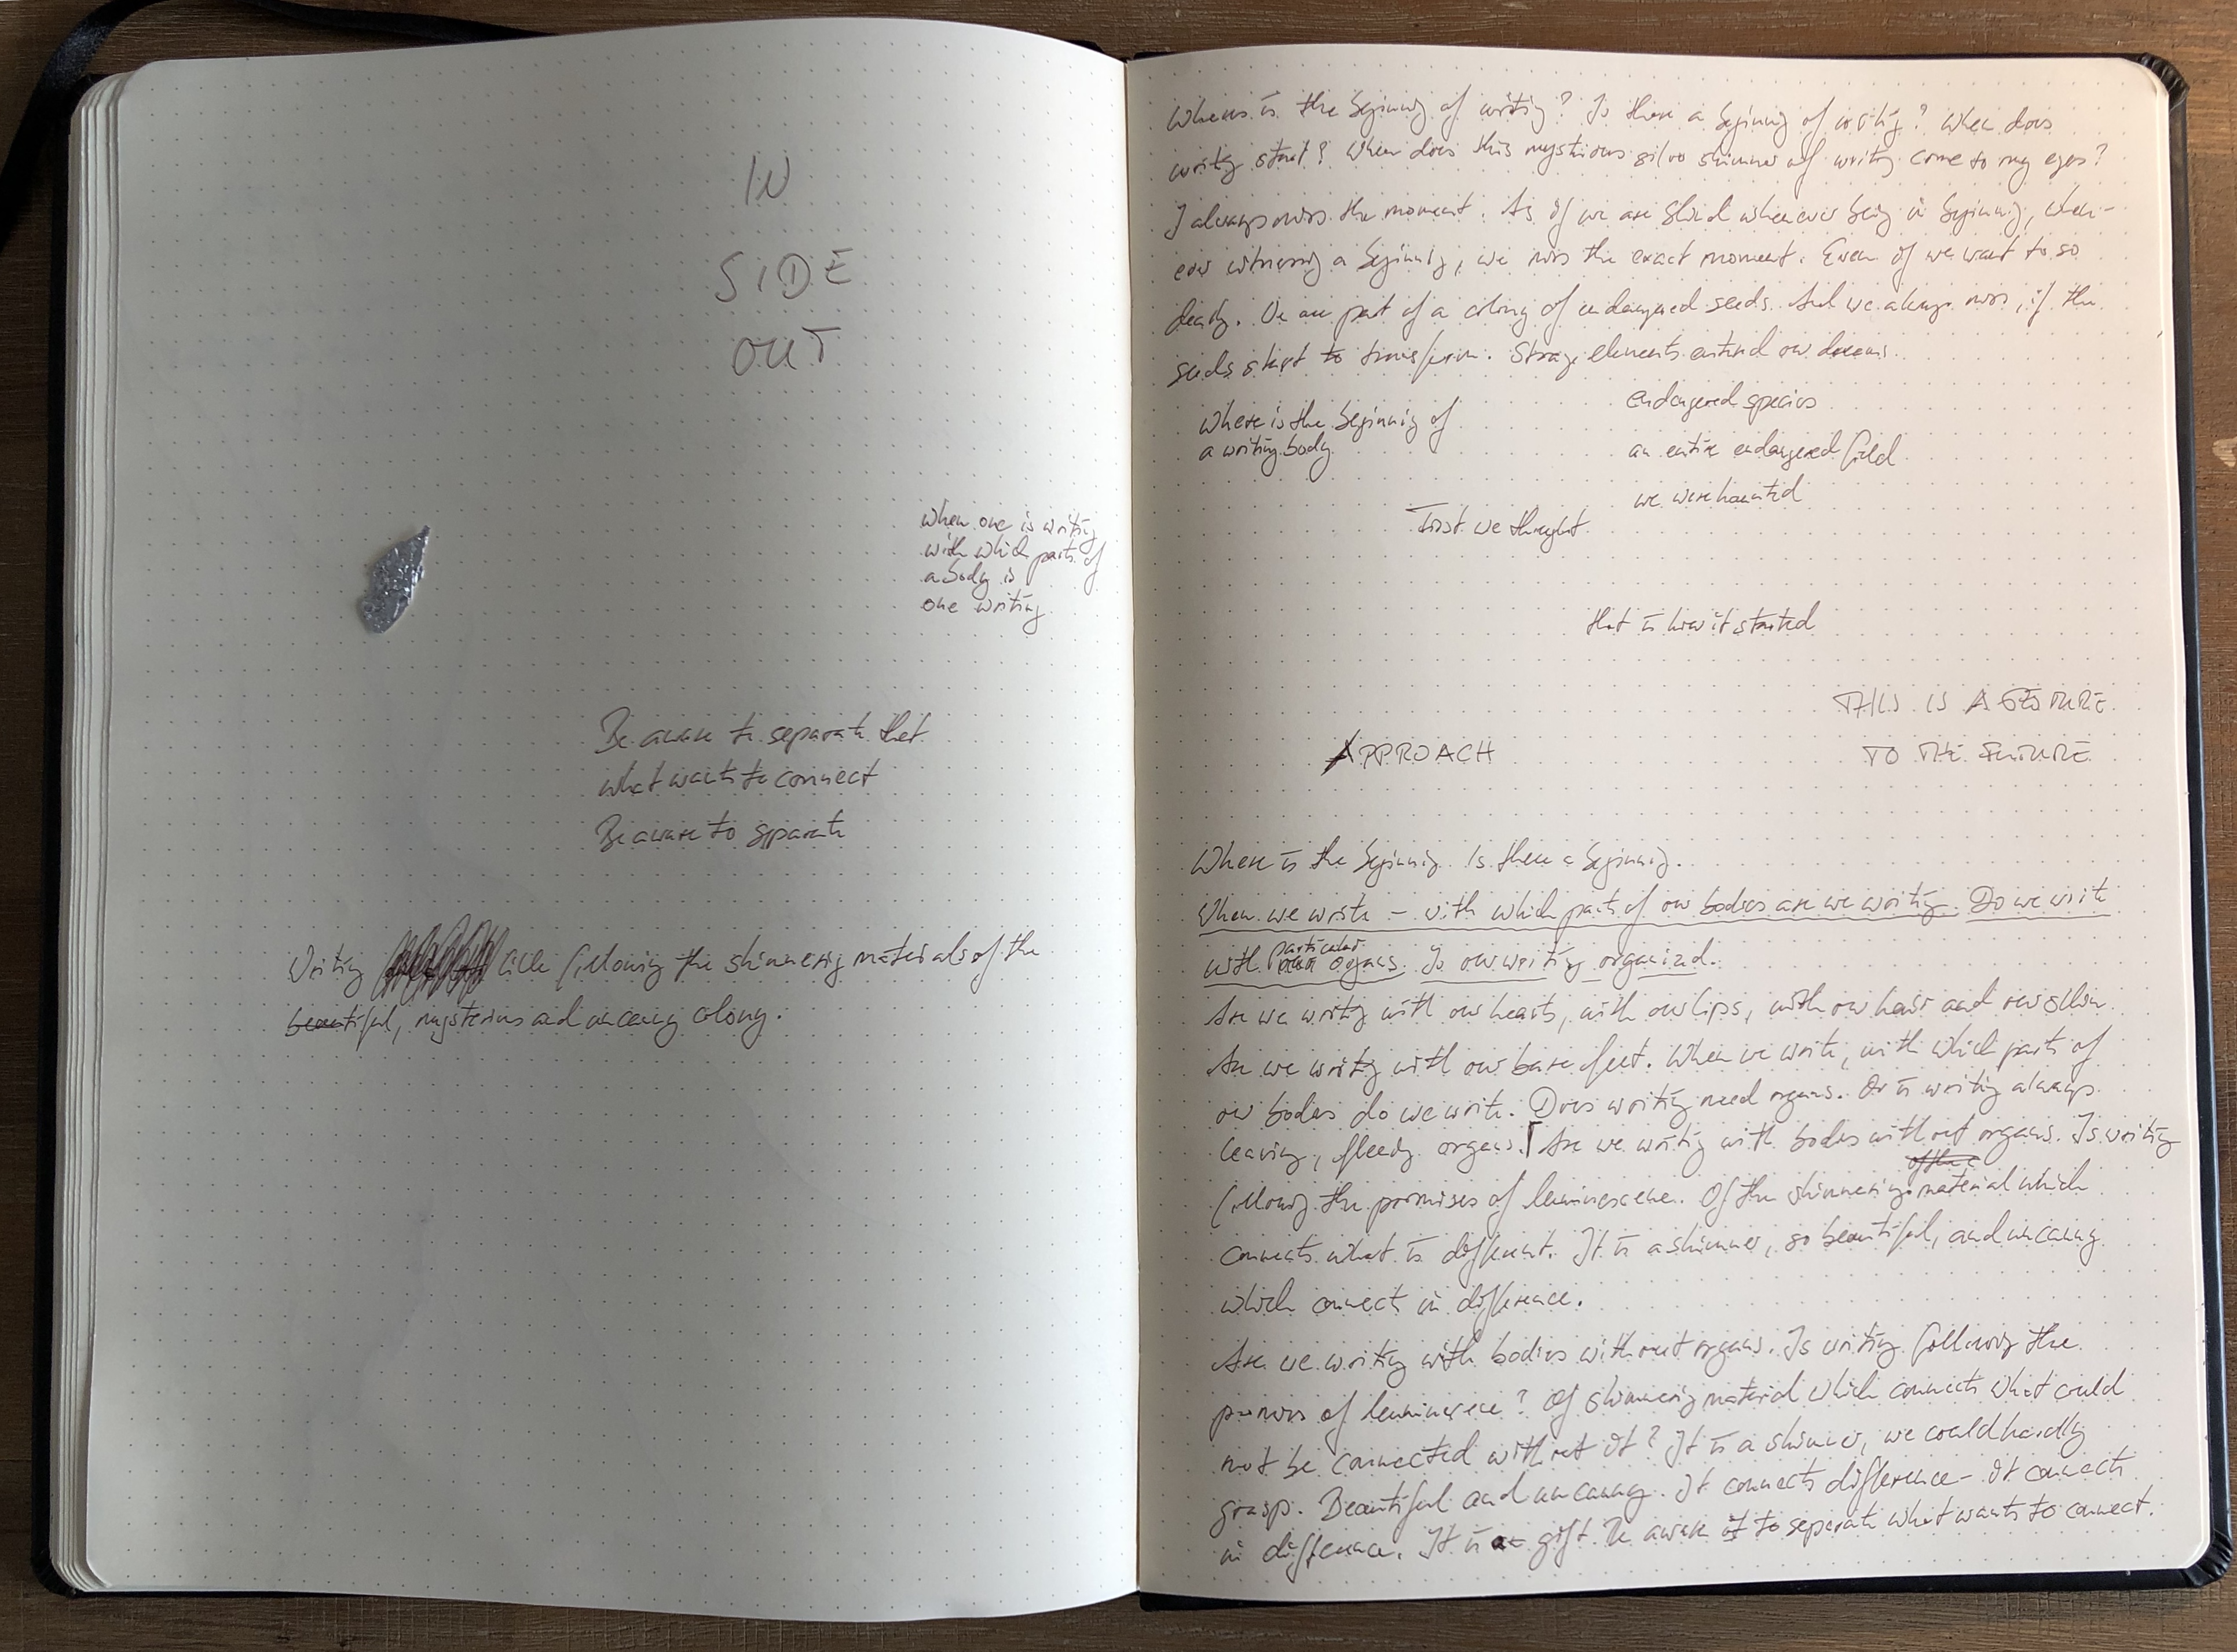 IN
SIDE
OUT
When one is writing
with which parts of
a body is
one writing
Be aware to separate that
what wants to connect
Be aware to separate
Writing like following the shimmering materials of the
beautiful, mysterious and uncanny colony.
Where is the beginning of writing? Is there a beginning of writing? When does
writing start? When does this mysterious silver shimmer of writing come to my eyes?
I always miss the moment. As if we are blind whenever being in beginning, when-
ever witnessing a beginning, we miss the exact moment. Even if we want to so
dearly. We are part of a colony of endangered seeds. And we always miss, if the
seeds start to transform. Strange elements entered our dreams.
Where is the beginning of
a writing body
endangered species
an entire endangered field
we were haunted
First we thought
that is how it started
THIS IS A GESTURE
APPROACH
TO THE FUTURE
Where is the beginning. Is there a beginning.
When we write – with which parts of our bodies are we writing. Do we write
with particular organs. Is our writing organized.
Are we writing with our hearts, with our lips, with our hair and our
Are we writing with our bare feet. When we write, with which parts of
our bodies do we write. Does writing need organs. Or is writing always
leaving, organs. Are we writing with bodies without organs. Is writing
following the promises of luminescence. Of the shimmering material which
connects what is different. It is a shimmer, so beautiful, and uncanny
which connect in difference.
Are we writing with bodies without organs. Is writing following the
promises of luminescence? Of shimmering material which connects what could
not be connected without it? It is a shimmer, we could hardly
grasp. Beautiful and uncanny. It connects difference – it connects
in difference. It is a gift. Be aware to separate what wants to connect.